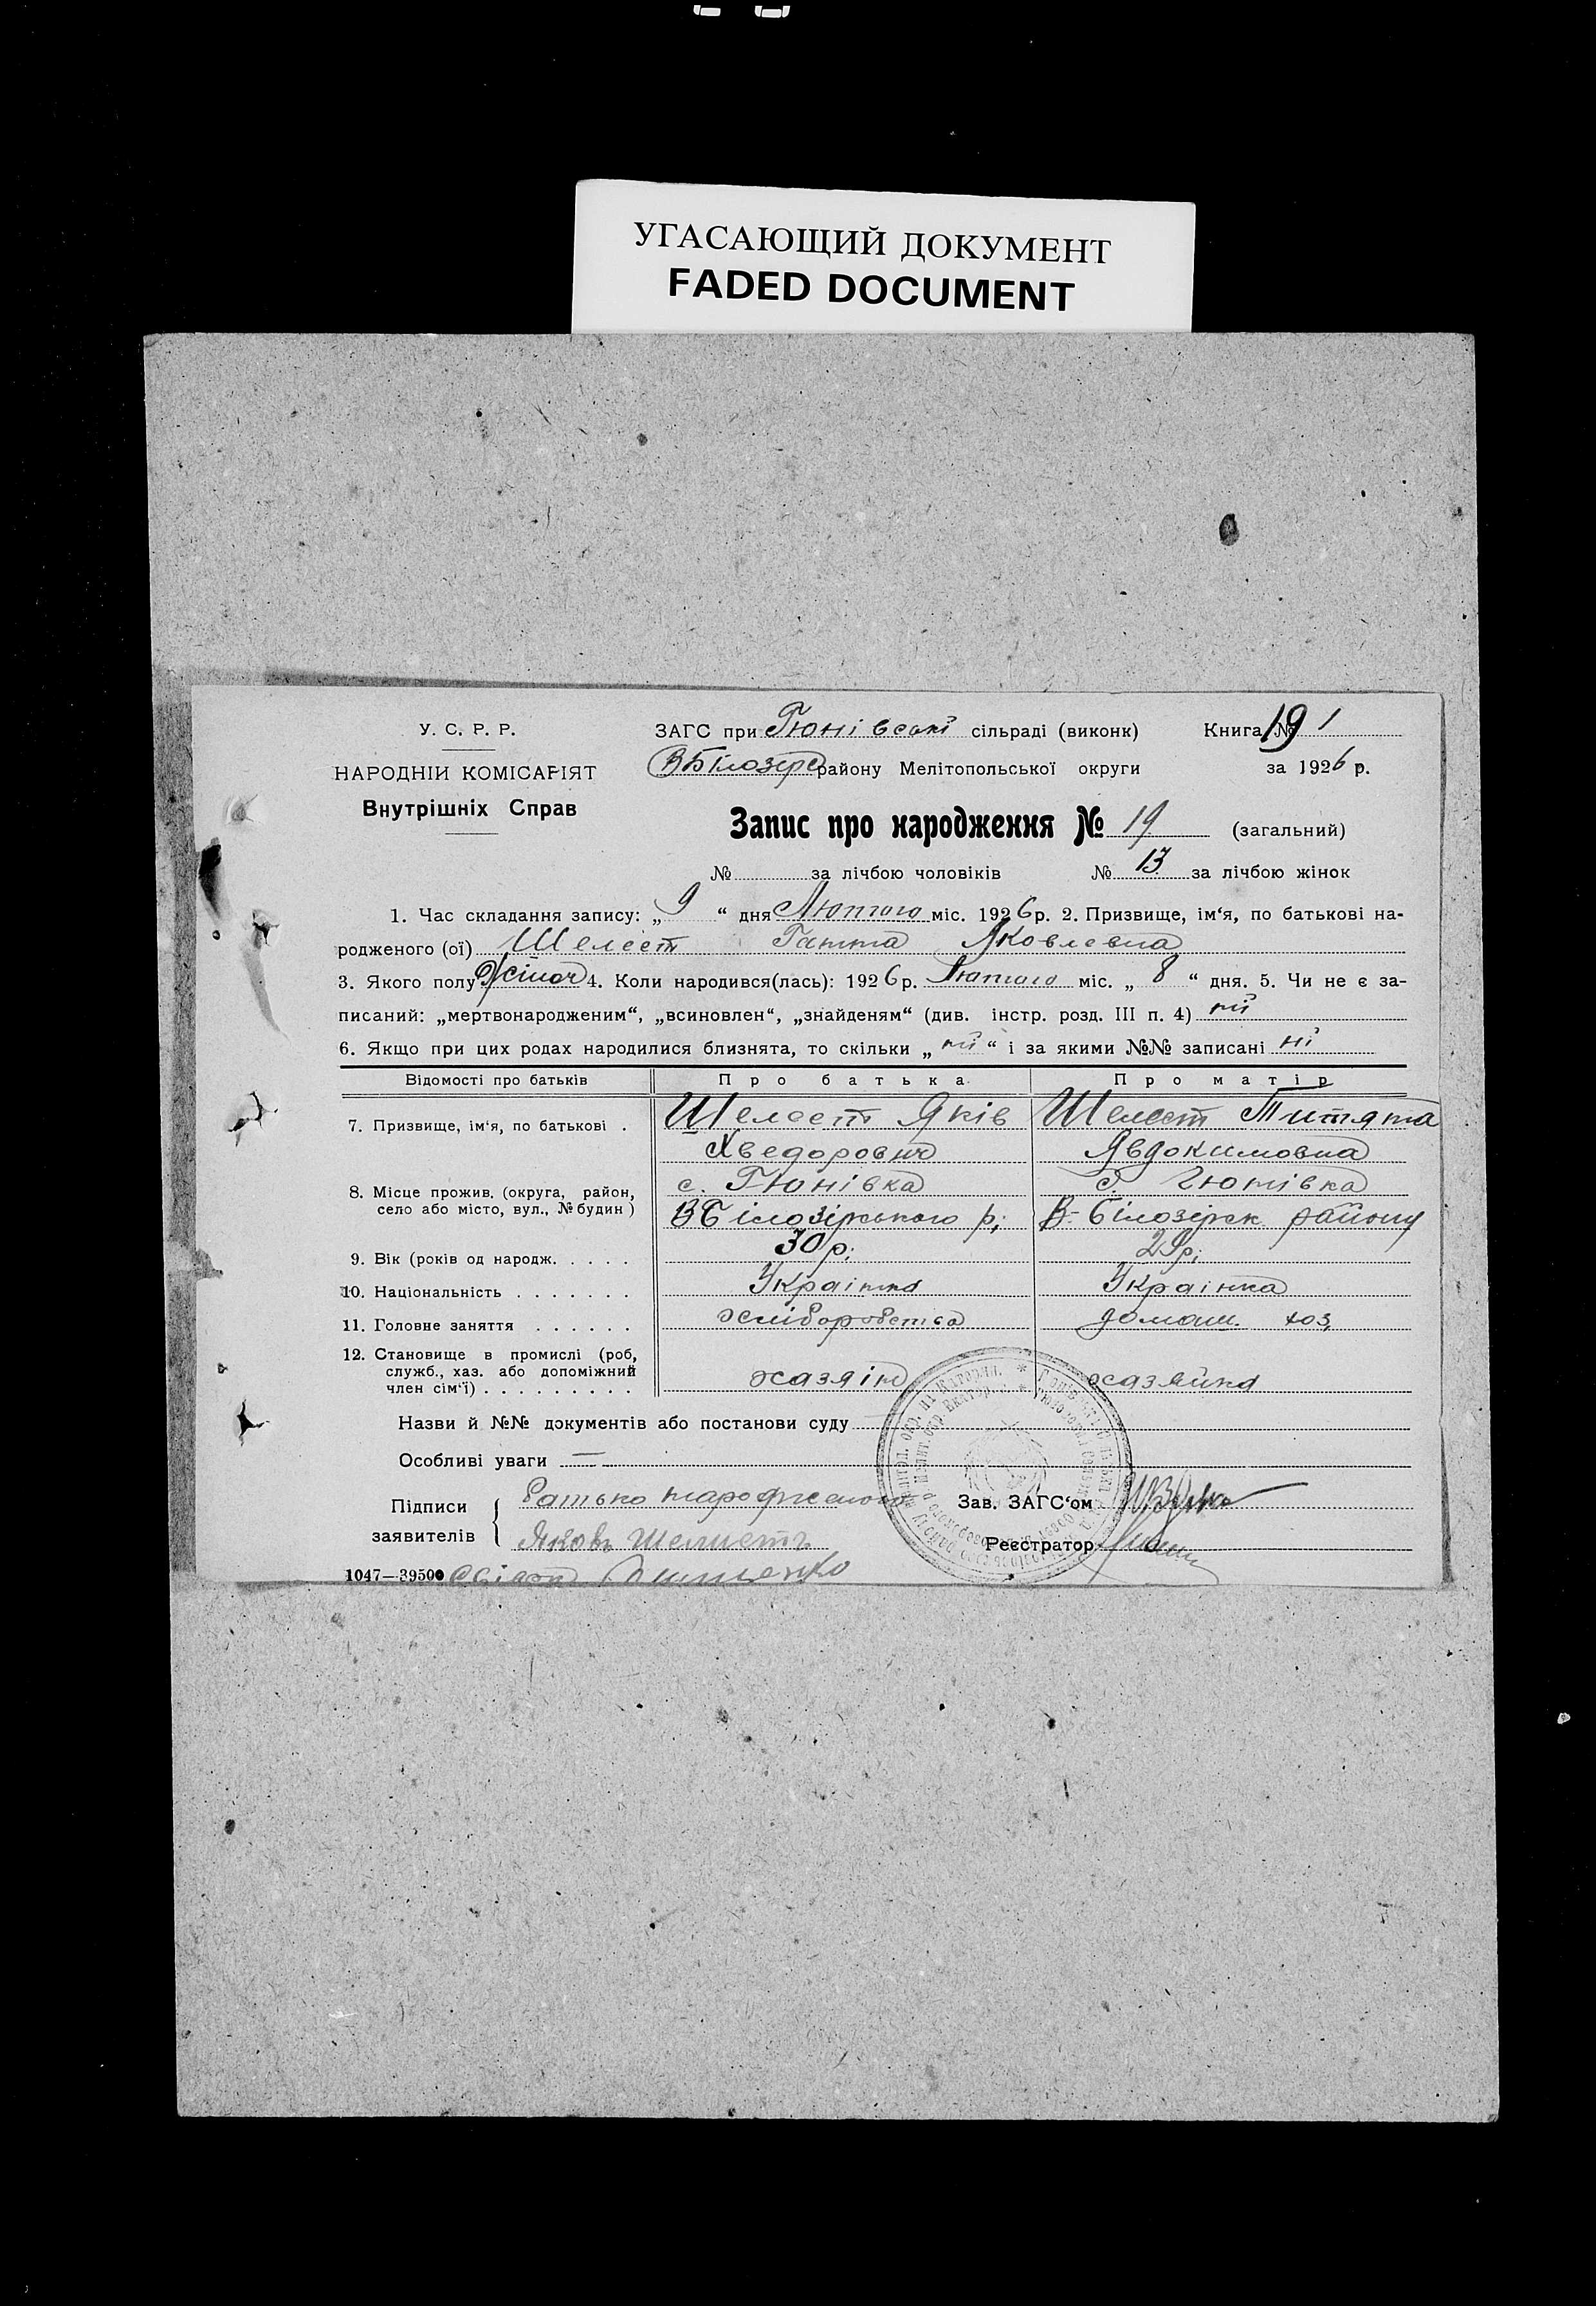 УГАСАЮЩИЙ ДОКУМЕНТ
FADED DOCUMENT
У. С. Р. Р.
НАРОДНІЙ КОМІСАРІЯТ
Внутрішніх Справ
ЗАГС при Гюнівські сільраді (виконк)
ВБілозірс району Мелітопольської округи
Книга № 1
19
за 1926 р.
Запис про народження № 19 (загальний)
№ за лічбою чоловіків № 13 за лічбою жінок
1. Час складання запису: „ 9 “ дня Лютого міс. 1926 р. 2. Призвище, ім‘я, по батькові на-
родженого (ої) Шелест Ганна Яковлевна
3. Якого полу Жіноч 4. Коли народився(лась): 1926 р. Лютого міс. „ 8 “ дня. 5. Чи не є за-
писаний: „мертвонародженим“, „всиновлен“, „знайденям“ (див. інстр. розд. III п. 4) ні
6. Якщо при цих родах народилися близнята, то скільки „ ні “ і за якими №№ записані ні
Відомості про батьків Про батька Про матір
7. Призвище, ім‘я, по батькові . Шелест Яків Шелест Титяна
Хведорович Явдокимовна
8. Місце прожив. (округа, район, с. Гюнівка с. Гюнівка
село або місто, вул., № будин ) ВБілозірського р; В-Білозірск району
9. Вік (років од народж. . . . . 30 р; 29 р;
10. Національність . . . . . . . Українец Українка
11. Головне заняття . . . . . . хліборобства домаш. хоз,
12. Становище в промислі (роб,
служб., хаз. або допоміжний
член сім‘ї) . . . . . . . . . хазяін хазяйка
Назви й №№ документів або постанови суду
Особливі уваги —
Підписи
заявителів
батько народженого
Яковъ Шелистъ
Зав. ЗАГС‘ом
Реєстратор
1047—39500